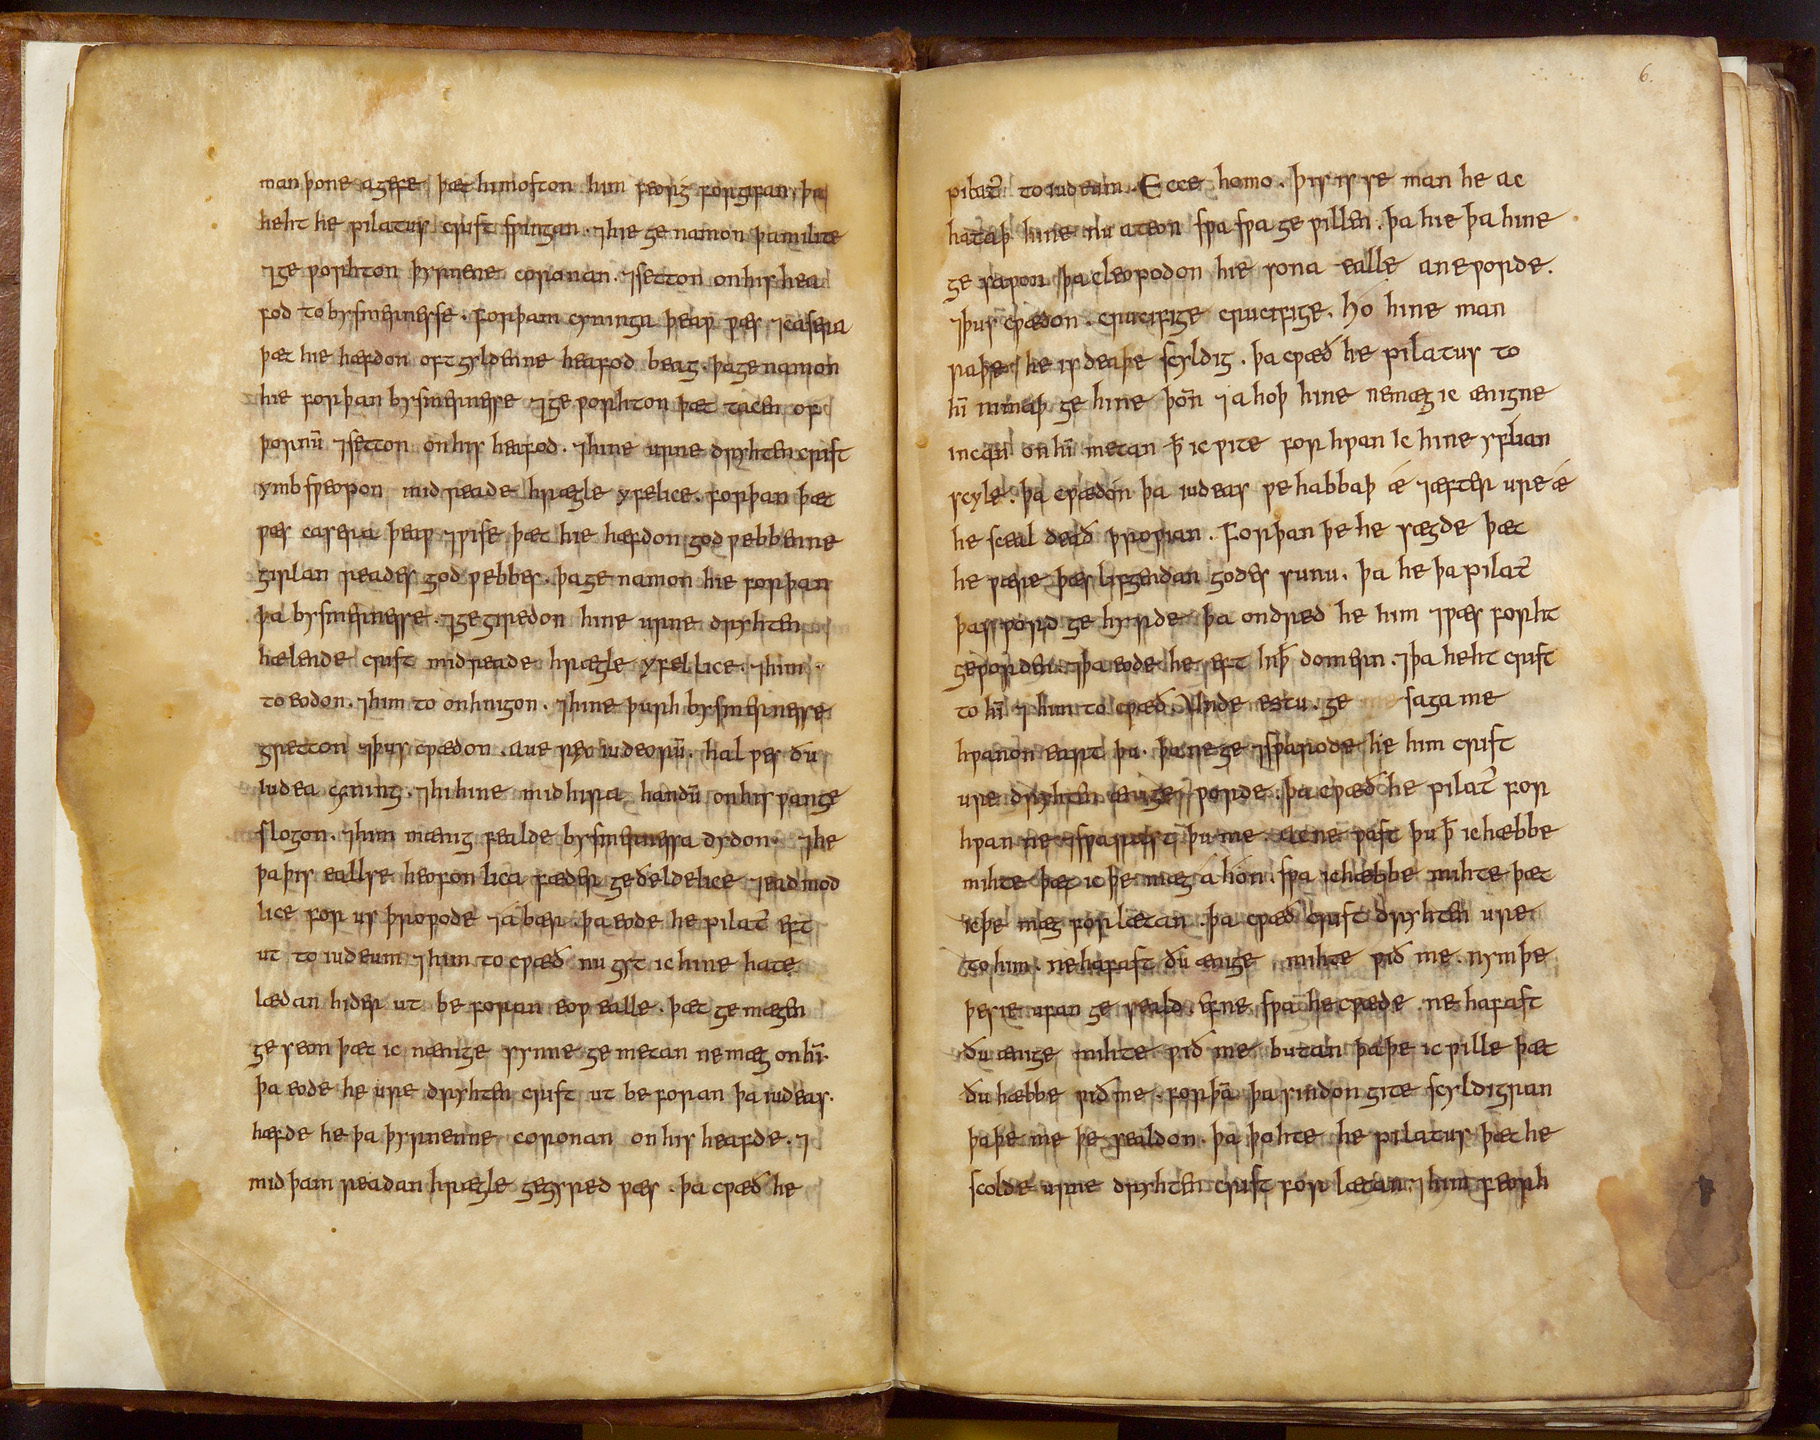 man þone agefe þæt him ofton him feorg forgifan, þa
heht he pilatus crist swingan. ⁊ hie ge namon þa milite
⁊ ge worhton þyrnene coronan. ⁊ setton on his hea
fod to bysmernesse. forþam cyninga þeaw wæs ⁊ casera
þæt hie hæfdon oft gyldenne heafod beag. þa ge namon
hie forþan bysmernesse ⁊ ge worhton þæt tacen of
þornū ⁊ setton on his heafod. ⁊ hine urne dryhten crist
ymb sweopon mid reade hrægle yfelice. forþan þæt
wæs casera þeaw ⁊ wise þæt hie hæfdon god webbenne
girlan reades god webbes. þa ge namon hie forþan
þa bysmernesse. ⁊ ge giredon hine urne dryhten
hælende crist mid reade hrægle yfellice. ⁊ him
to eodon. ⁊ him to onhnigon. ⁊ hine þurh bysmernesse
gretton ⁊ þus cwædon. aue rex iudeorū. hal wes ðu
iudea cyning. ⁊ hi hine mid hira handū on his wange
slogon. ⁊ him mænig fealde bysmernessa dydon. ⁊ he
þa þis eallse heofonlica fæder geðeldelice ⁊ eadmod
lice for us þrowode ⁊ abær. þa eode he pilat̄ eft
ut to iudeum ⁊ him to cwæð nu gyt ic hine hate
lædan hider ut be foran eow ealle. þæt ge mægen
ge seon þæt ic nænige synne ge metan ne mæg on hī.
þa eode he ure dryhten crist ut be foran þa iudeas.
hæfde he þa þyrnenne coronan on his heafde. ⁊
mid þam readan hrægle gegyred wæs. þa cwæð he
6.
pilat̄ to iudeum. Ecce homo. þis is se man he ac
hataþ hine nu ateon swa swa ge willen. þa hie þa hine
ge sawon þa cleopodon hie sona ealle ane worde.
⁊ þus cwædon. crucifige crucifige. hó hine man
raþe he is deaþe scyldig. þa cwæð he pilatus to
hī nimaþ ge hine þoñ ⁊ a hoþ hine ne mæg ic ænigne
incan on hī metan ꝥ ic wite for hwan ic hine yflian
scyle. þa cwædon þa iudeas we habbaþ ǽ ⁊ æfter ure ǽ
he sceal deað þrowian. Forþan þe he sægde þæt
he wære þæs lifgendan godes sunu. þa he þa pilat̄
þas word ge hyrde þa ondred he him ⁊ wæs forht
geworden. ⁊ þa eode he eft in ꝥ domern. ⁊ þa heht crist
to hī ⁊ him to cwæð. Unde es tu. ge saga me
hwanon eart þu. þa ne ge ⁊swarode he him crist
ure dryhten ænige worde. þa cwæð he pilat̄ for
hwan ne ⁊swarast þu me. ac ne wast þu ꝥ ic hæbbe
mihte þæt ic þe mæg á hón. swa ic hæbbe mihte þæt
ic þe mæg forlætan. þa cwæð crist dryhten ure
to him. ne hafast ðu ænige mihte wið me. nymþe
þerie ufan ge seald. efne swa he cwæde ne hafast
ðu ænige mihte wið me butan þa þe ic wille þæt
ðu hæbbe wið me. forþā þa sindon gite scyldigran
þa þe me þe sealdon. þa þohte he pilatus þæt he
scolde urne dryhten crist forlætan. ⁊ him feorh